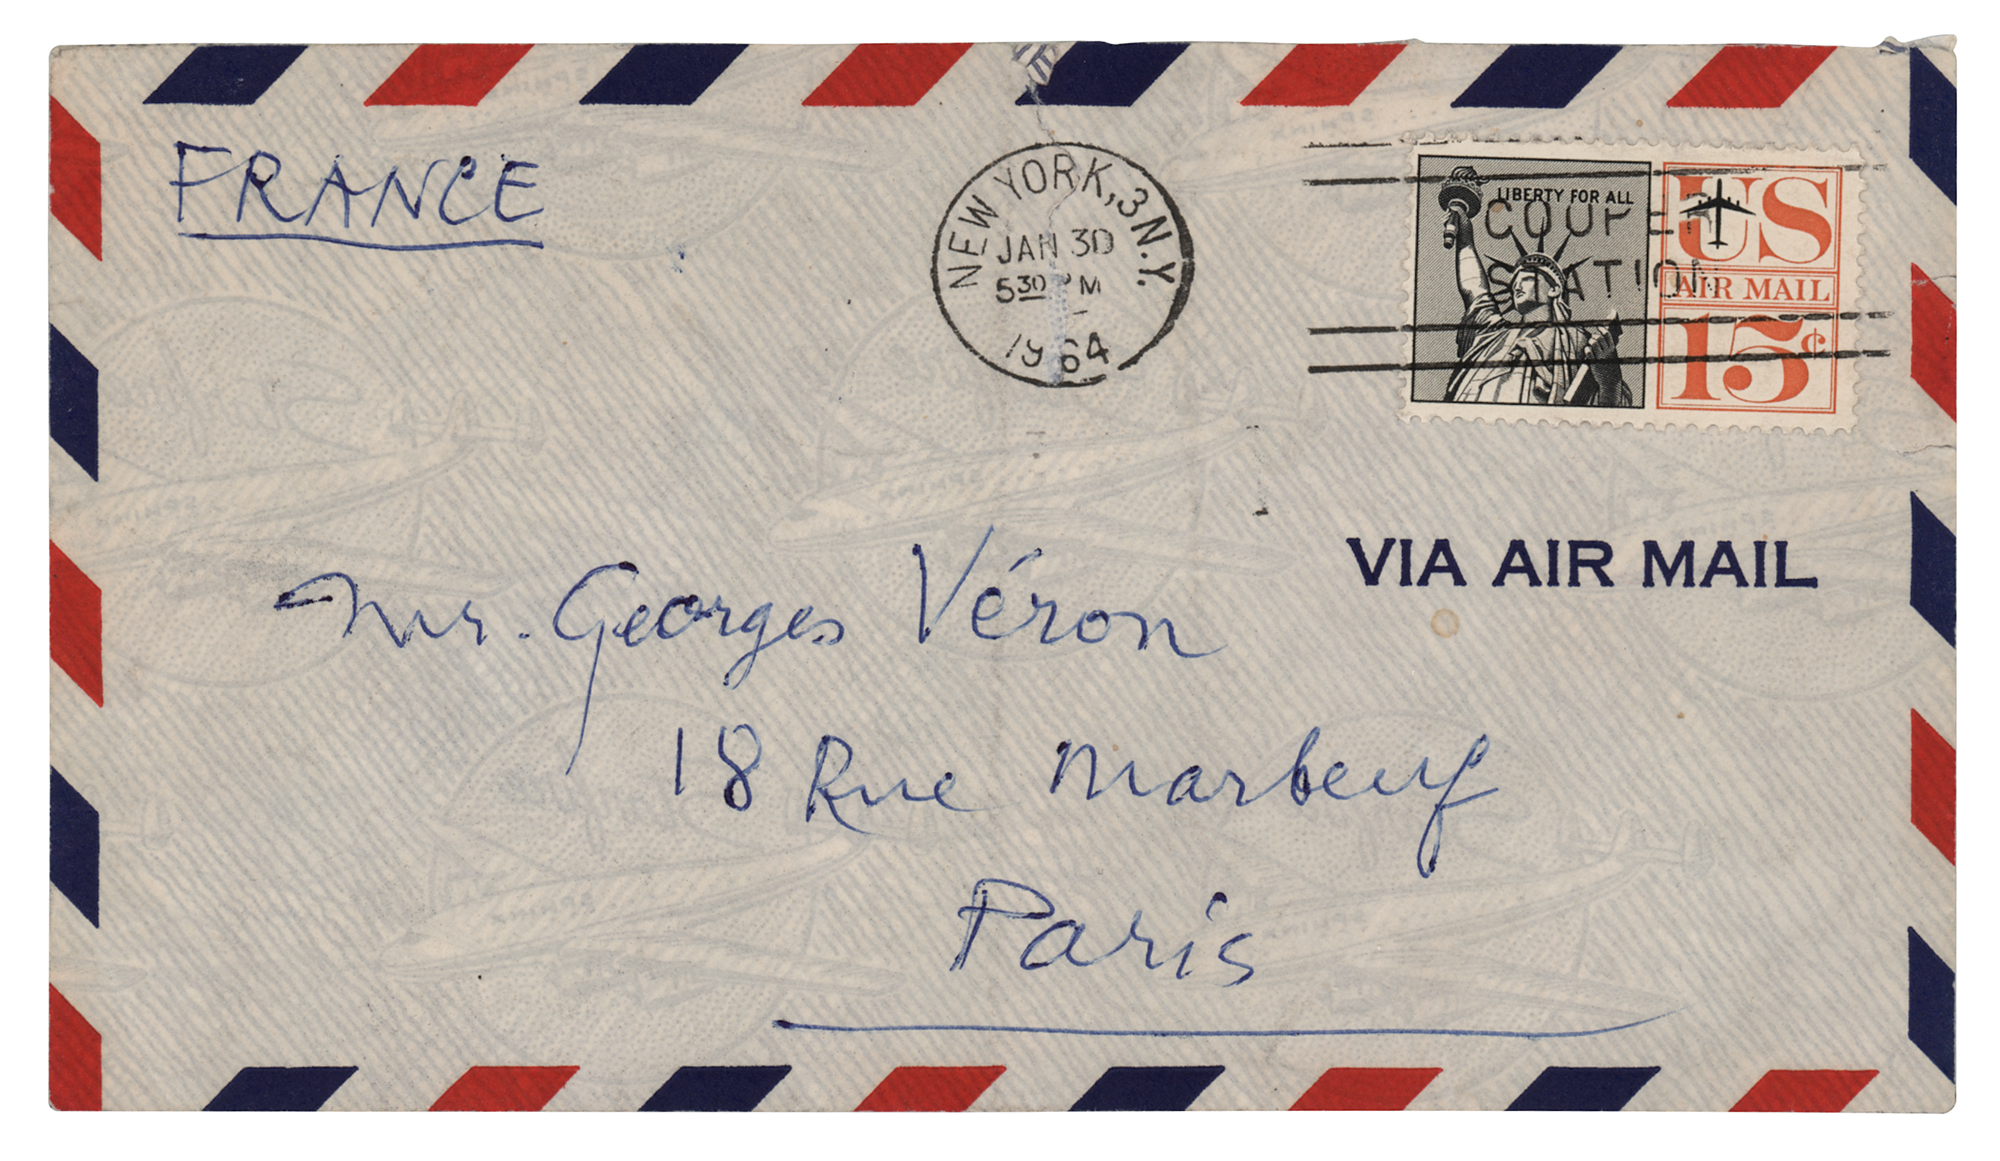 FRANCE
NEW YORK, 3 N.Y.
JAN 30
5 30 PM
1964
LIBERTY FOR ALL
COOPER
STATION
US
AIR MAIL
15¢
VIA AIR MAIL
Mr. Georges Véron
18 Rue Marbeuf
Paris